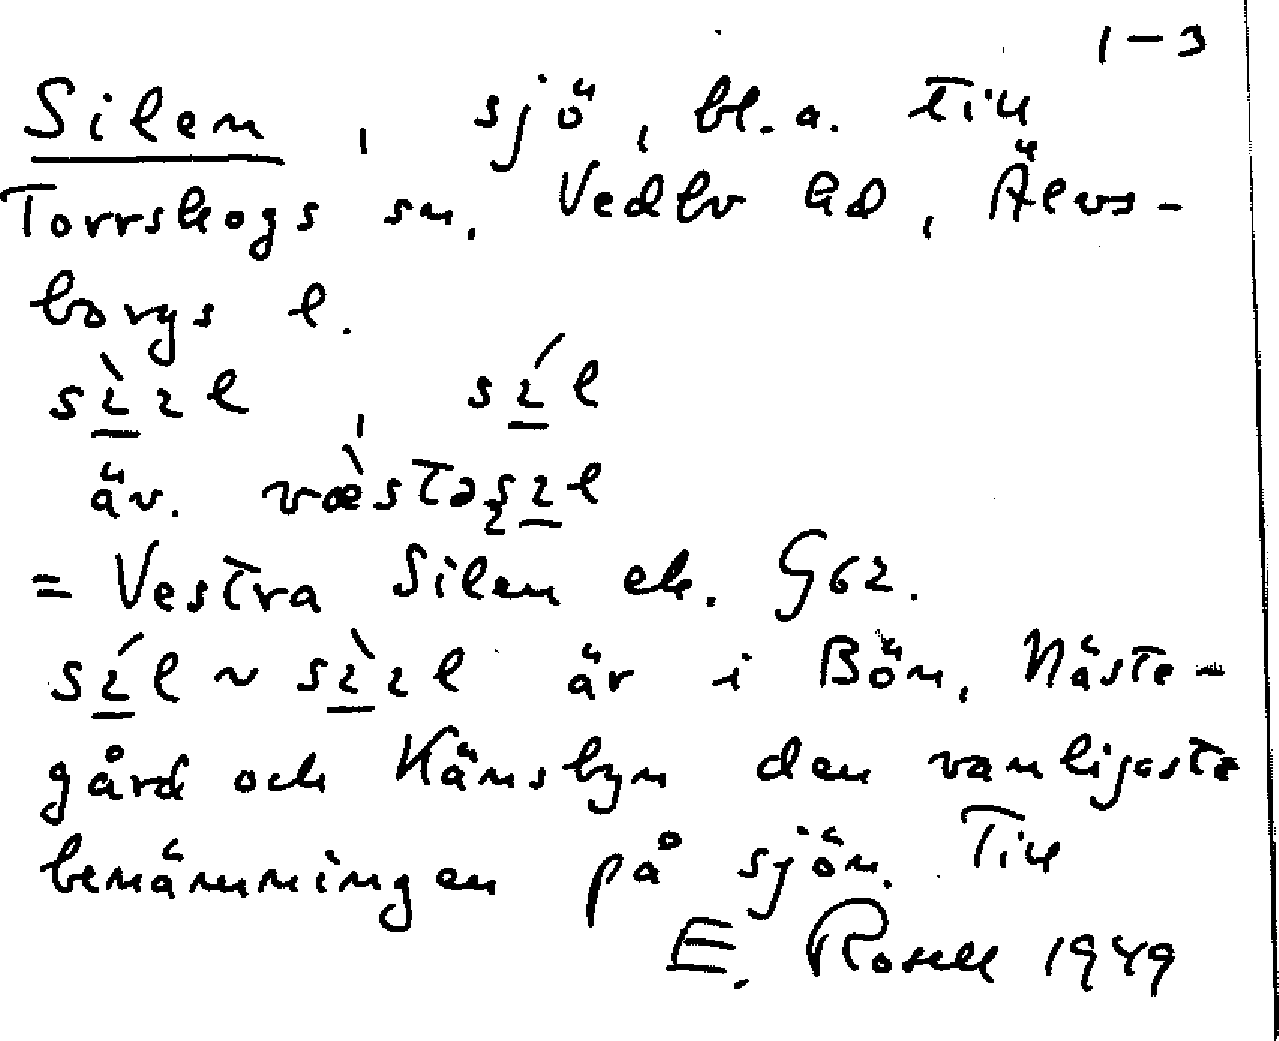 1-3
Silen, sjö, bl.a. till
Torrskogs sn, Vedbo hd, Älvs-
borgs l.
sɩ̀ɩl, sɩ́l
äv. væ̀stəʂɩl
= Vestra Silen ek. G62.
sɩ́l ~ sɩ̀ɩl är i Bön, Näste-
gård och Hänsbyn den vanligaste
benämningen på sjön. Till
E. Rosell 1949